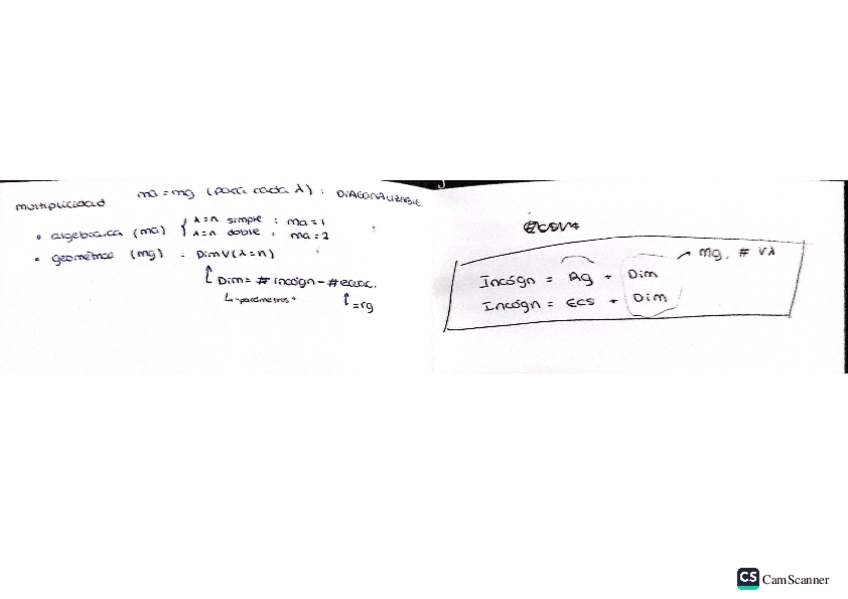 multiplicidad
ma = mg (para cada λ) : DIAGONALIZABLE.
• algebraica (ma) { λ=n simple : ma = 1
λ=n doble : ma = 2
• geométrica (mg) : Dim V(λ=n)
Dim = # incógn - # ecuac.
↳ parámetros
= rg
Incógn = Rg + Dim
mg, # vλ
Incógn = ECS + Dim
CS CamScanner